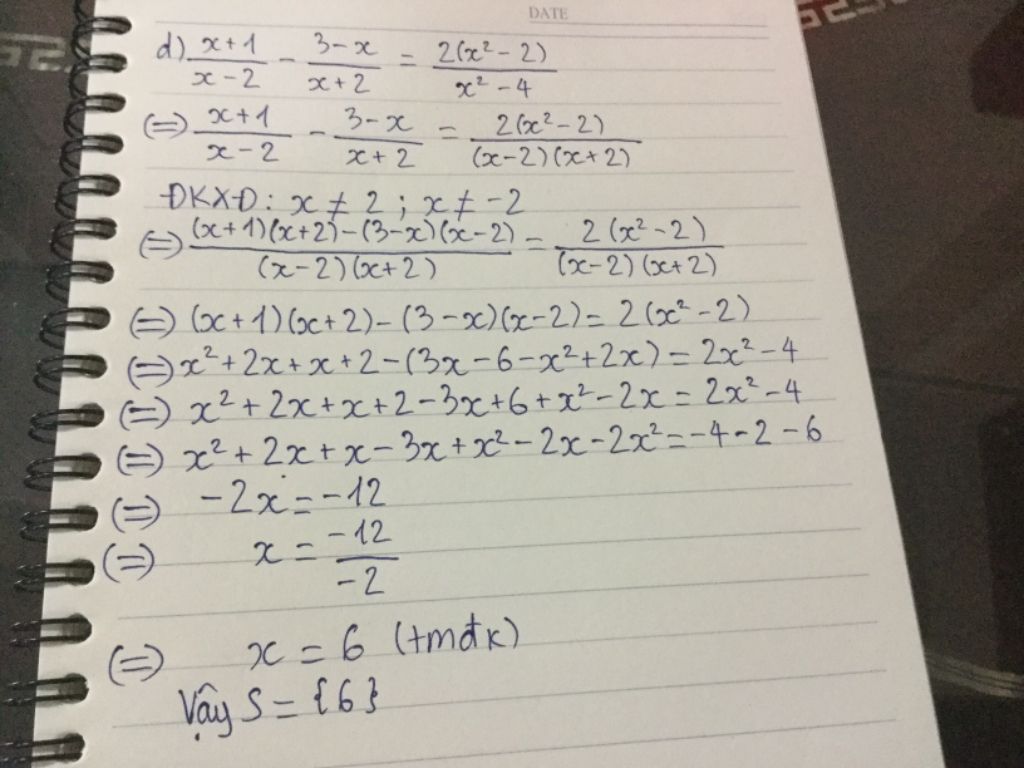 DATE
d) \frac{x+1}{x-2} - \frac{3-x}{x+2} = \frac{2(x²-2)}{x²-4}
(=) \frac{x+1}{x-2} - \frac{3-x}{x+2} = \frac{2(x²-2)}{(x-2)(x+2)}
ĐKXĐ: x ≠ 2 ; x ≠ -2
(=) \frac{(x+1)(x+2)-(3-x)(x-2)}{(x-2)(x+2)} = \frac{2(x²-2)}{(x-2)(x+2)}
(=) (x+1)(x+2)-(3-x)(x-2) = 2(x²-2)
(=) x²+2x+x+2-(3x-6-x²+2x) = 2x²-4
(=) x²+2x+x+2-3x+6+x²-2x = 2x²-4
(=) x²+2x+x-3x+x²-2x-2x² = -4-2-6
(=) -2x = -12
(=) x = \frac{-12}{-2}
(=) x = 6 (tmđk)
Vậy S = {6}